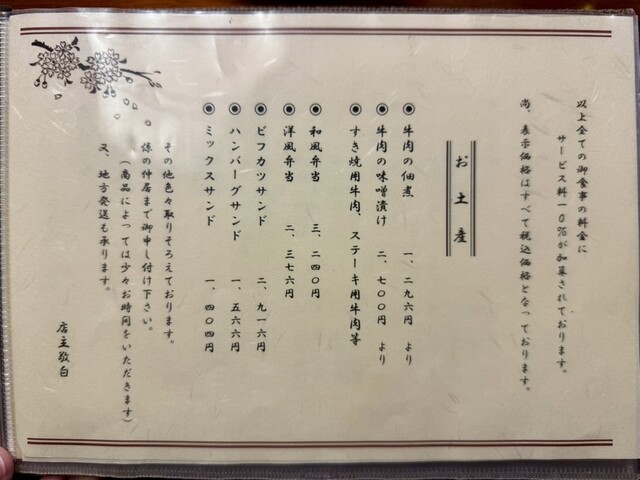 以上全ての御食事の料金に
サービス料一〇%が加算されております。
尚、表示価格はすべて税込価格となっております。
お土産
◉ 牛肉の佃煮 一、二九六円 より
◉ 牛肉の味噌漬け 二、七〇〇円 より
◉ すき焼用牛肉、ステーキ用牛肉等
◉ 和風弁当 三、二四〇円
◉ 洋風弁当 二、三七六円
◉ ビフカツサンド 二、九一六円
◉ ハンバーグサンド 一、五六六円
◉ ミックスサンド 一、四〇四円
その他色々取りそろえております。
係の仲居まで御申し付け下さい。
(商品によっては少々お時間をいただきます)
又、地方発送も承ります。
店主敬白